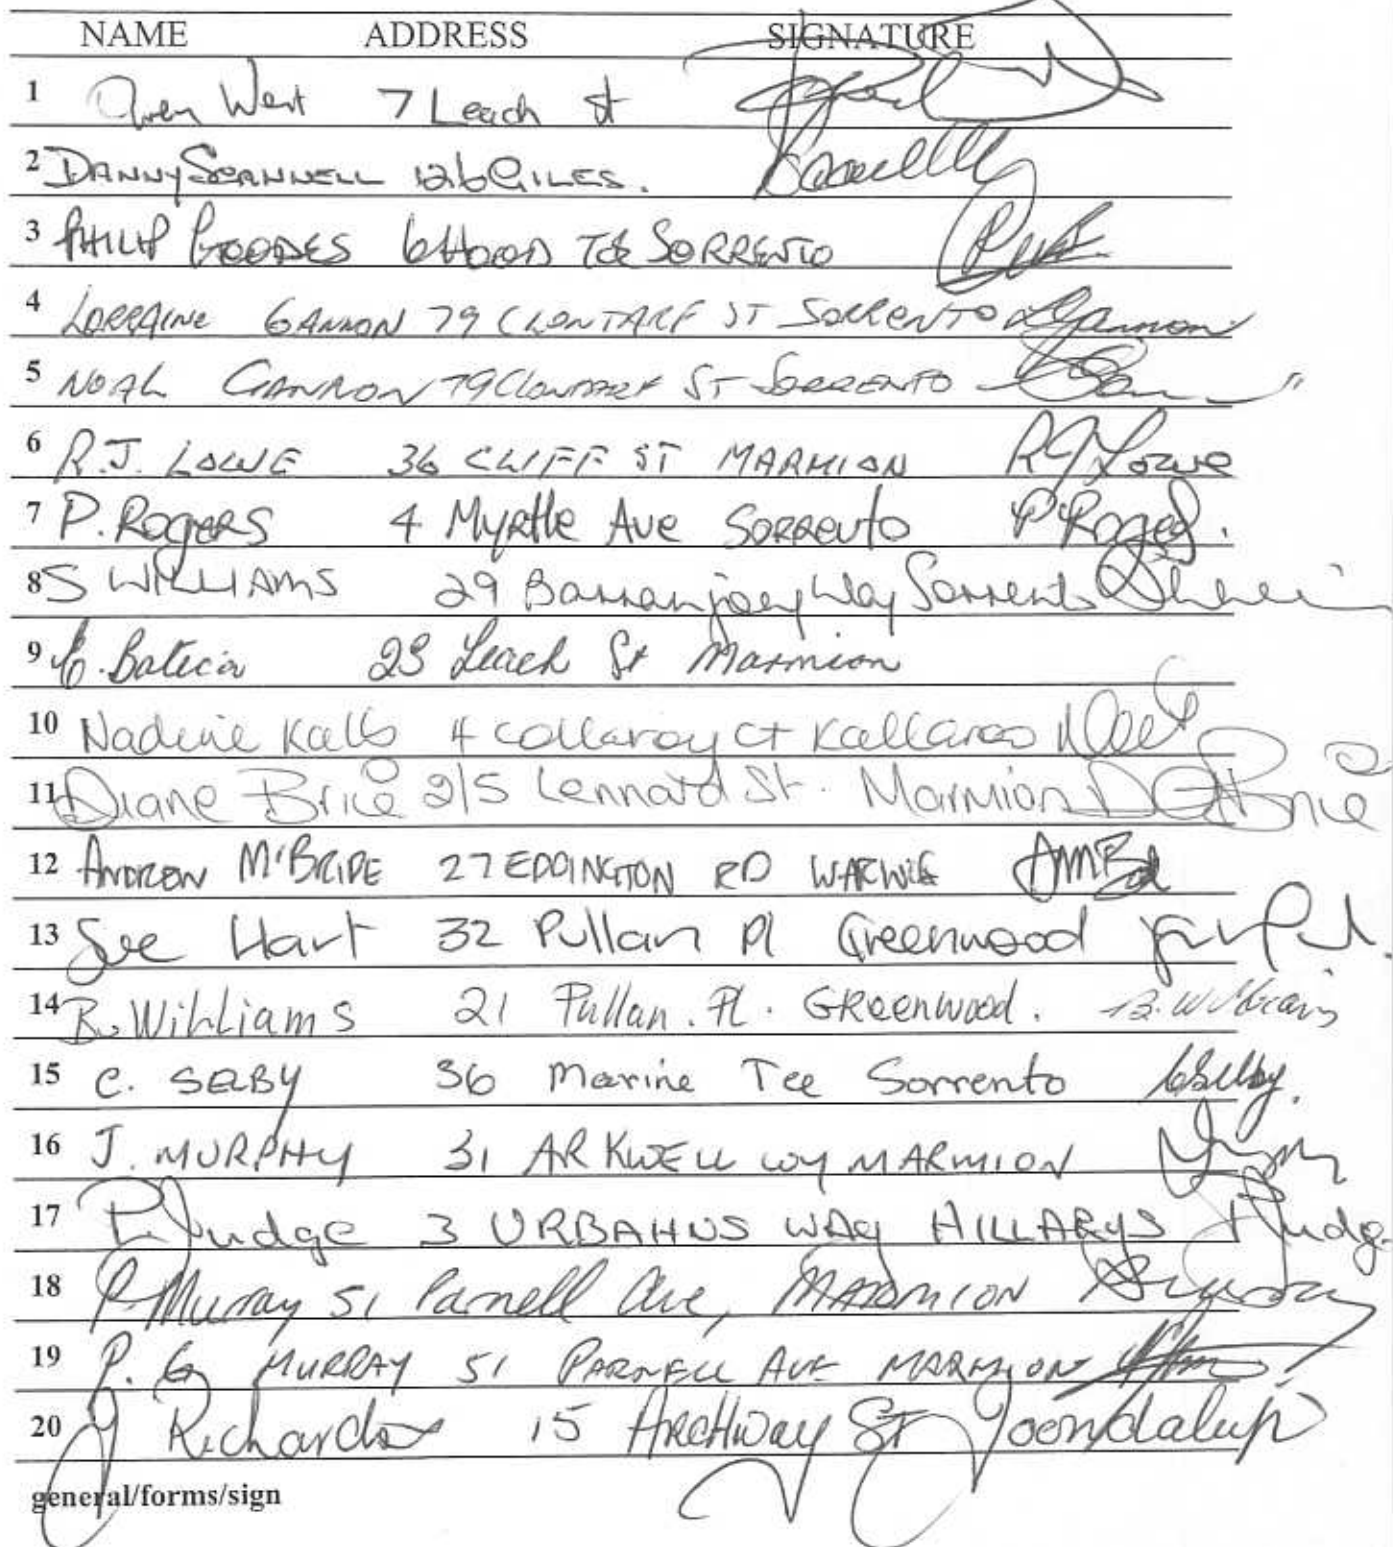 NAME ADDRESS SIGNATURE
1 Owen West 7 Leach St
2 DANNY SCANNELL 126 GILES.
3 PHILIP 6 HOOD TCE SORRENTO
4 LORRAINE GANNON 79 CLONTARF ST SORRENTO LGannon
5 NOAL GANNON 79 Clontarf ST SORRENTO
6 R.J. LOWE 36 CLIFF ST MARMION RJLowe
7 P. ROGERS 4 Myrtle Ave SORRENTO P Rogers.
8 S WILLIAMS 29 Barranjoey Way Sorrento
9 23 Leach St Marmion
10 Nadine Kalb 4 Collaroy Ct Kallaroo
11 Diane Brice 2/5 Lennard St. Marmion D Brice
12 ANDREW McBRIDE 27 EDDINGTON RD WARWICK
13 Sue Hart 32 Pullan Pl Greenwood
14 B. Williams 21 Pullan. Pl. GReenwood. B. Williams
15 C. SELBY 36 Marine Tce Sorrento CSelby.
16 J. MURPHY 31 ARKWELL WY MARMION
17 P. Judge 3 URBAHNS WAY HILLARYS PJudge
18 P. Murray 51 Parnell Ave, MARMION
19 P. G MURRAY 51 PARNELL AVE MARMION
20 J Richards 15 ArcHway St Joondalup
general/forms/sign